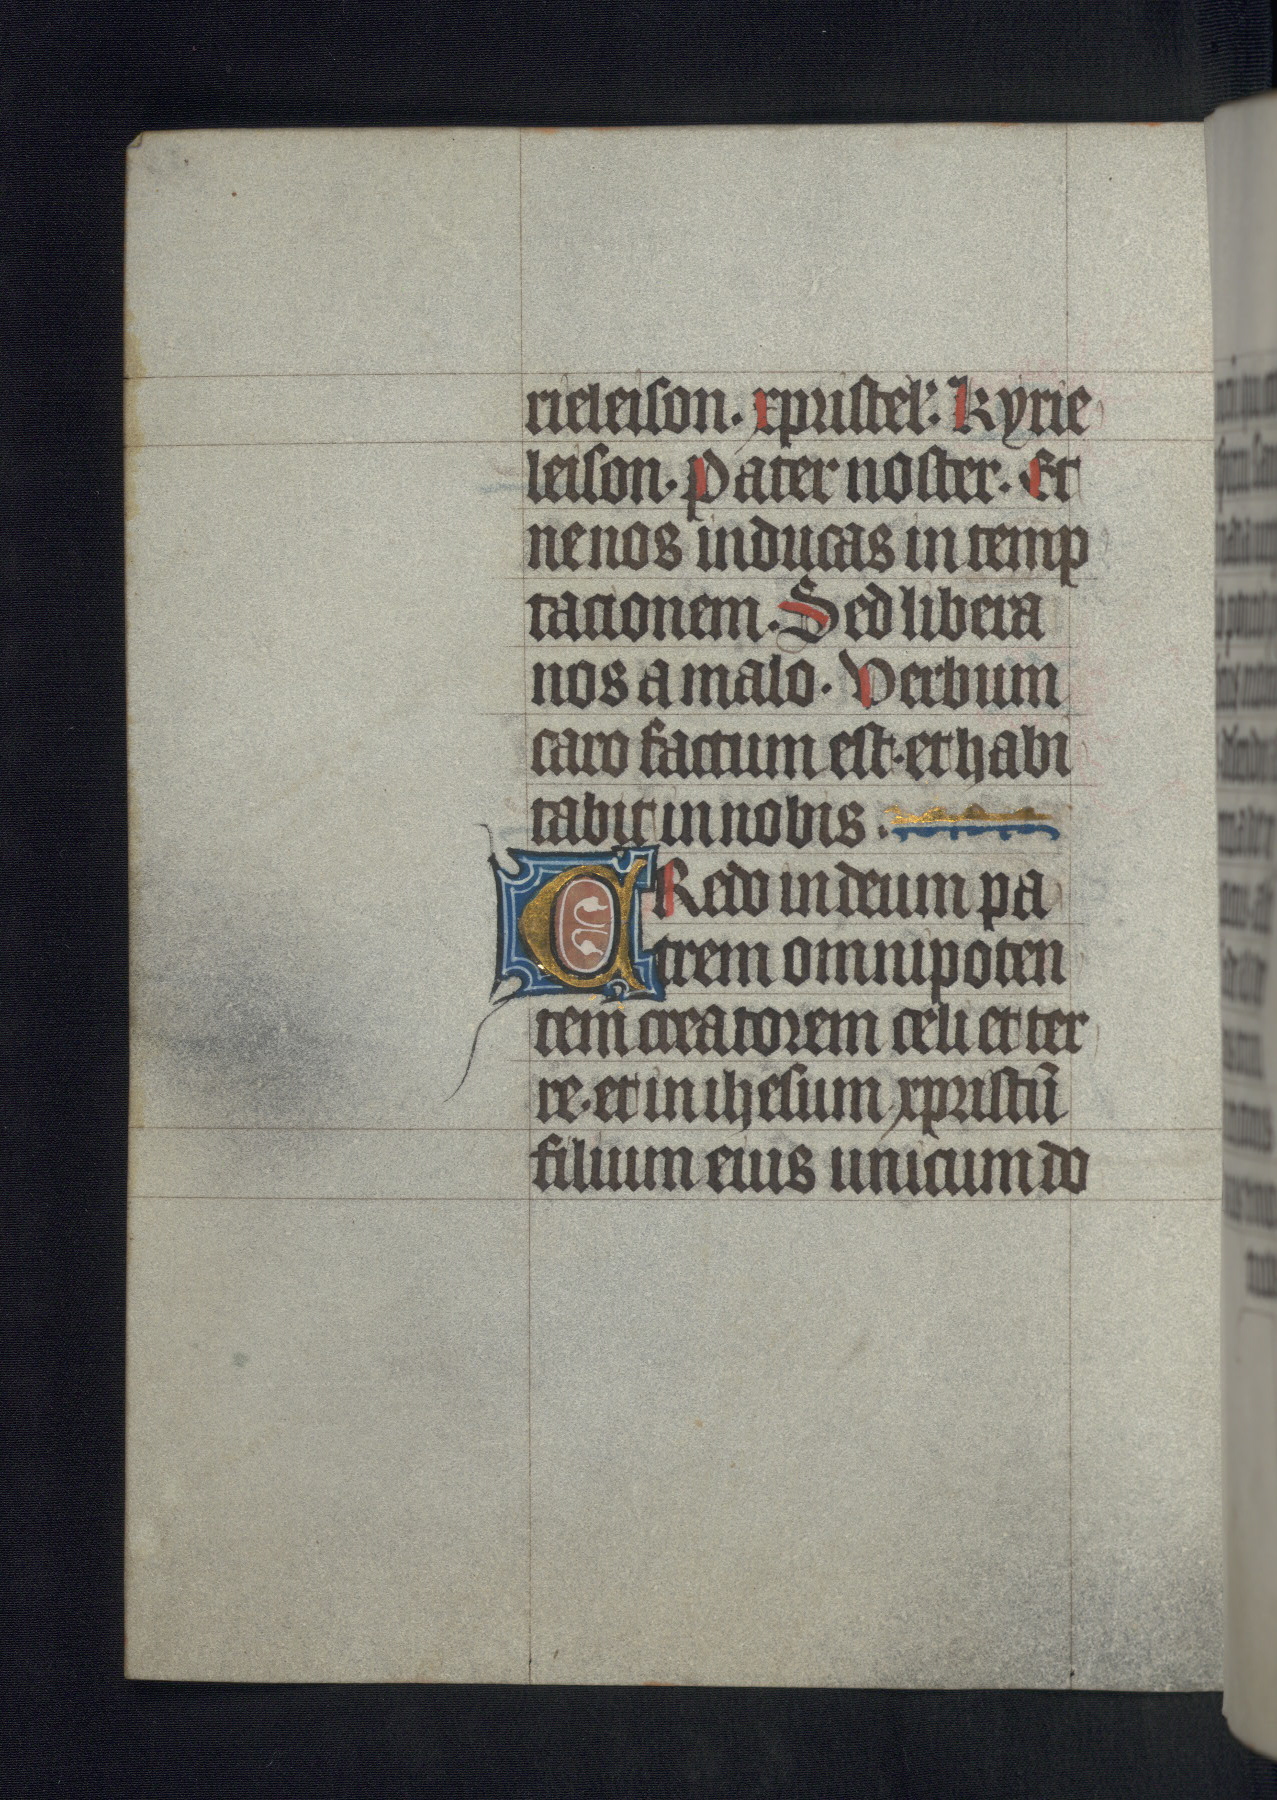 rieleison. xpristel'. kyrie
leison. Pater noster. Et
ne nos inducas in temp
tacionem. Sed libera
nos a malo. Verbum
caro factum est. et habi
tabit in nobis.
CRedo in deum pa
trem omnipoten
tem creatorem celi et ter
re. et in ihesum xpristū
filium eius unicum do